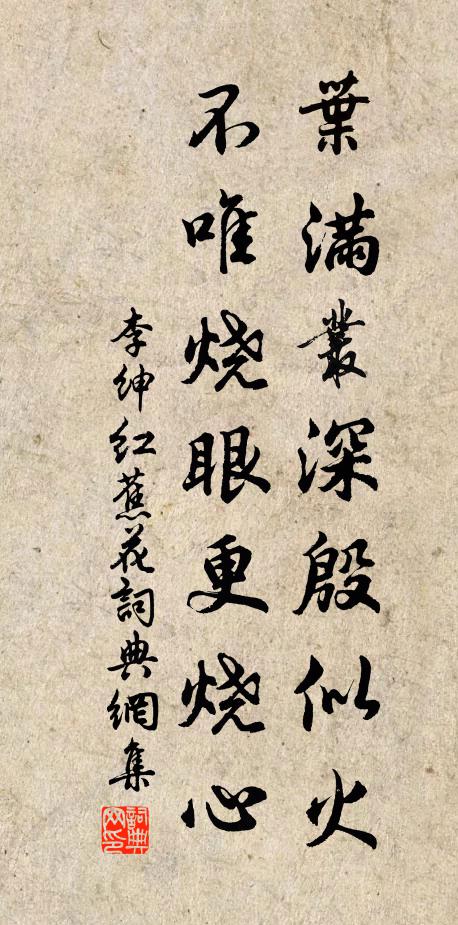 葉滿叢深殷似火
不唯烧眼更烧心
李紳红蕉花詞典網集
詞典网印